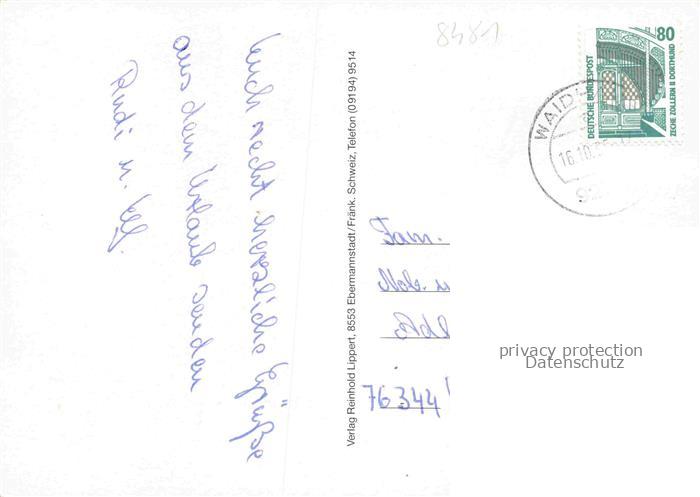 8481
80
DEUTSCHE BUNDESPOST
ZECHE ZOLLERN II DORTMUND
WAID
16.10.
92
Euch recht herzliche Grüße
aus dem Urlaub senden
Rudi u.
Verlag Reinhold Lippert, 8553 Ebermannstadt/Fränk. Schweiz, Telefon (09194) 9514
Fam.
76344
privacy protection
Datenschutz